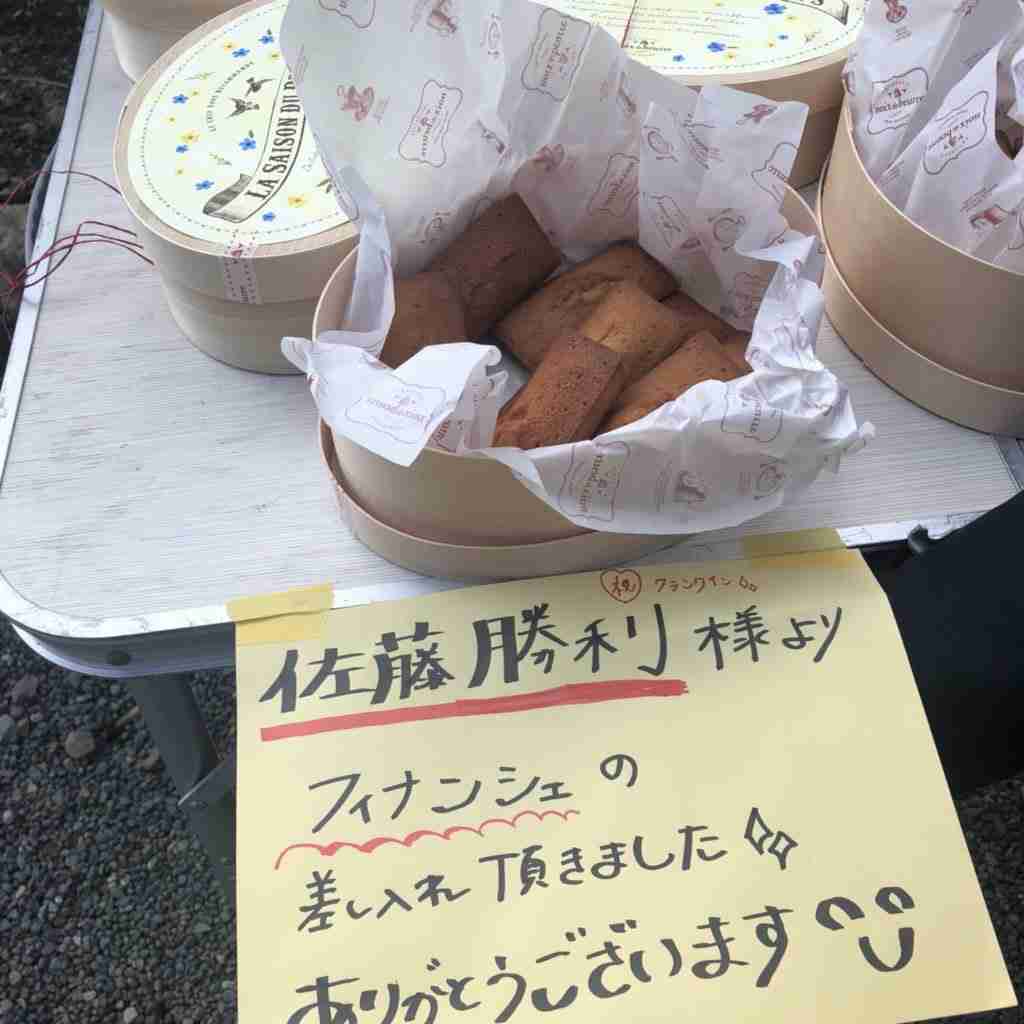 LA SAISON DU
㊗ クランクイン
佐藤勝利様より
フィナンシェの
差し入れ頂きました
ありがとうございます